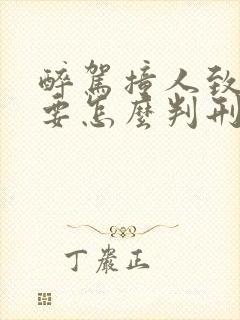 醉駕撞人致
要怎麼判刑
丁嚴正